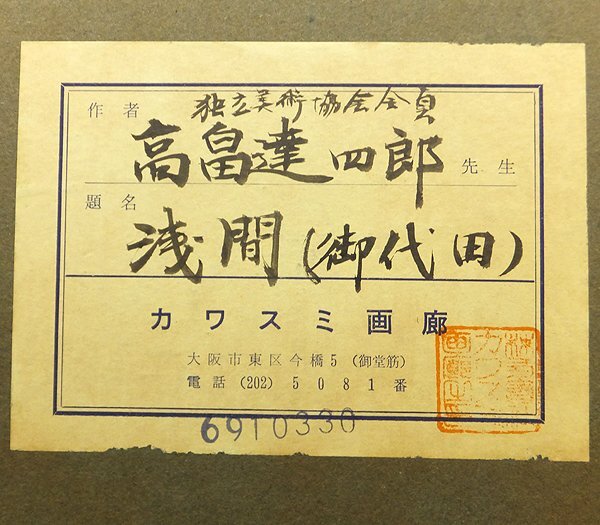 作者 独立美術協会会員
高畠達四郎 先生
題名
浅間(御代田)
カワスミ画廊
大阪市東区今橋5(御堂筋)
電話(202)5081番
6910330